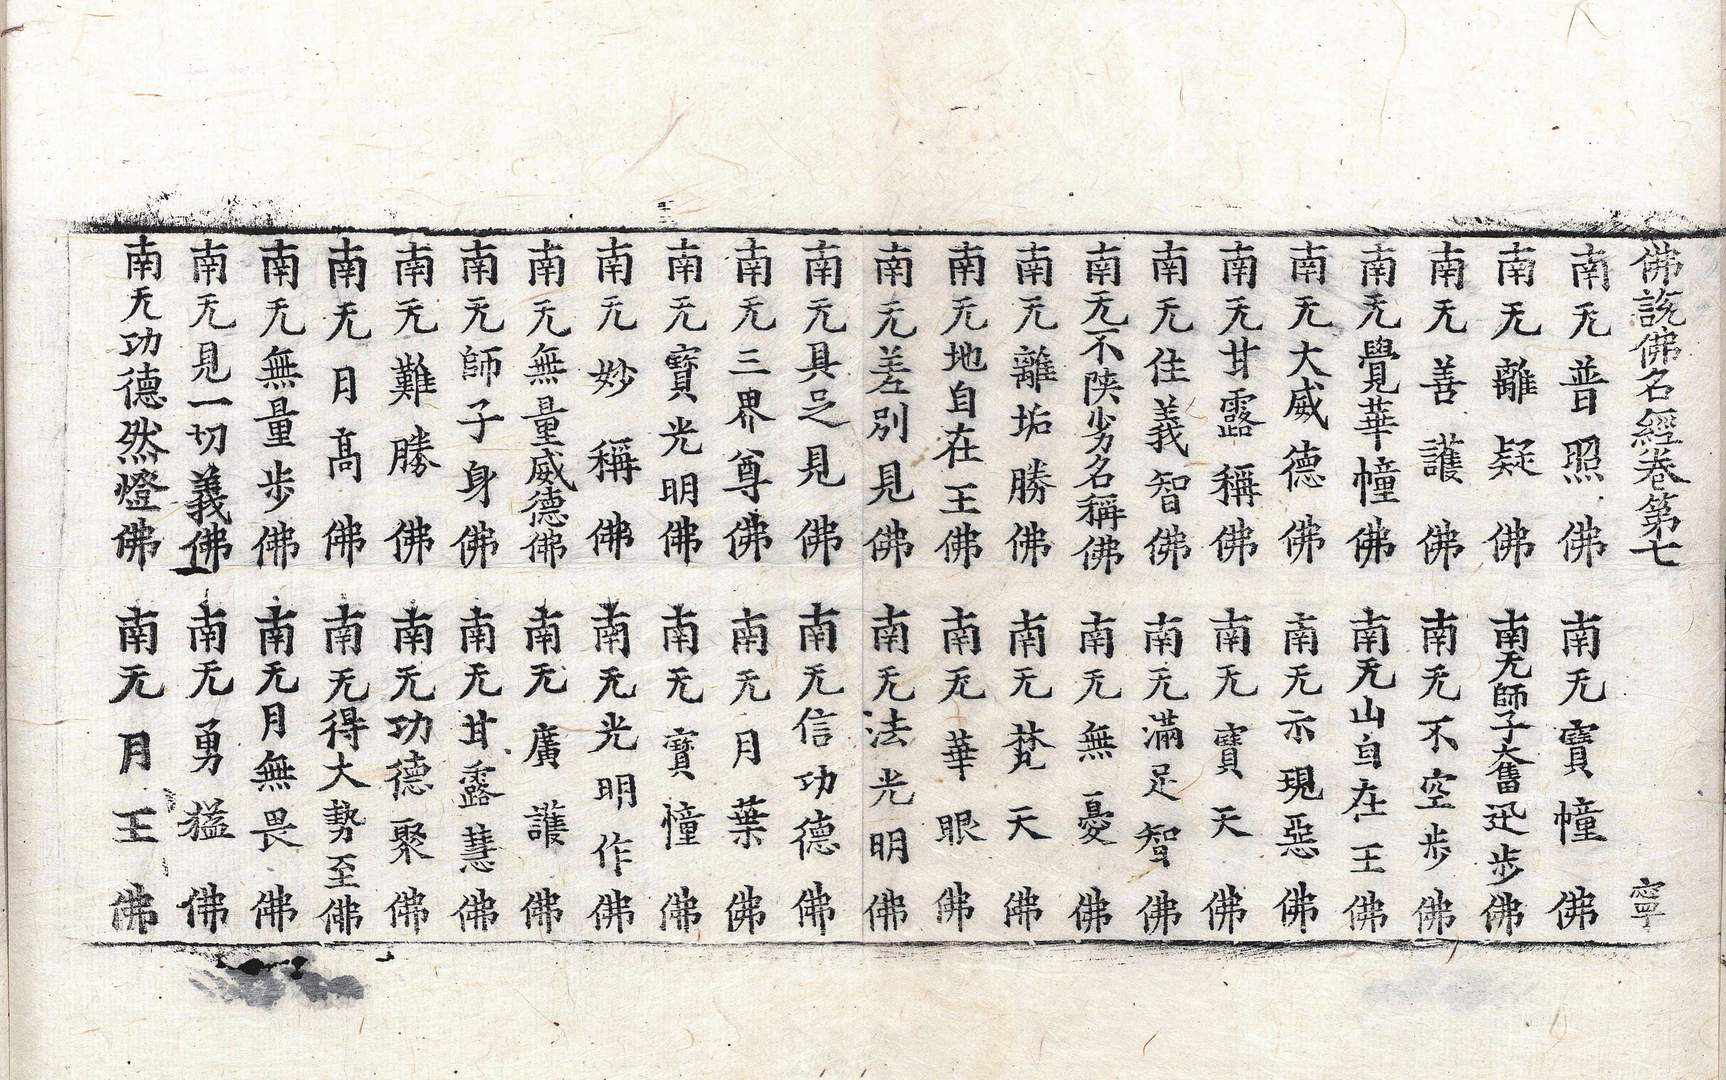 佛說佛名經卷第七 寧
南无普照佛 南无寶幢佛
南无離疑佛 南无師子奮迅步佛
南无善護佛 南无不空步佛
南无覺華幢佛 南无山自在王佛
南无大威德佛 南无示現惡佛
南无甘露稱佛 南无寶天佛
南无住義智佛 南无滿足智佛
南无不陜劣名稱佛 南无無憂佛
南无離垢勝佛 南无梵天佛
南无地自在王佛 南无華眼佛
南无差別見佛 南无法光明佛
南无具足見佛 南无信功德佛
南无三界尊佛 南无月葉佛
南无寶光明佛 南无寶幢佛
南无妙稱佛 南无光明作佛
南无無量威德佛 南无廣護佛
南无師子身佛 南无甘露慧佛
南无難勝佛 南无功德聚佛
南无月高佛 南无得大勢至佛
南无無量步佛 南无月無畏佛
南无見一切義佛 南无勇猛佛
南无功德然燈佛 南无月王佛